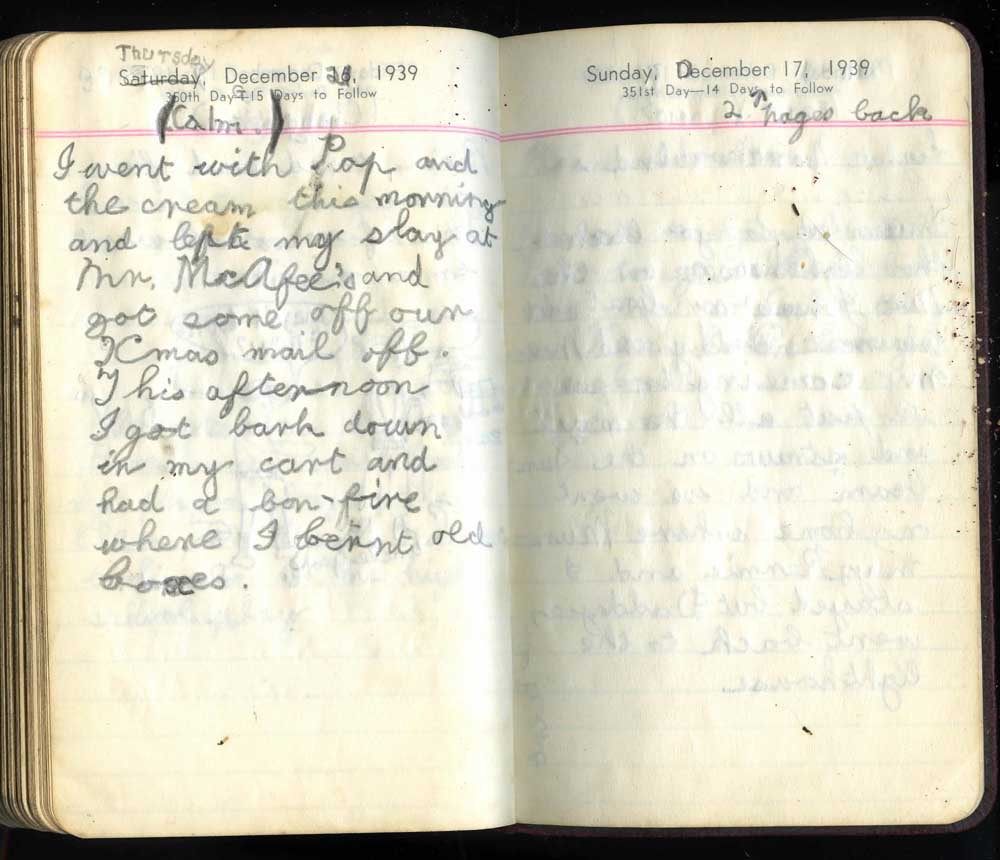 Thursday
Saturday, December 16, 1939
350th Day—15 Days to Follow
(Calm.)
I went with Pap and
the cream this morning
and left my slay at
Mr. McAfee's and
got some off our
Xmas mail off.
This afternoon
I got bark down
in my cart and
had a bon-fire
where I bernt old
boxes.
Sunday, December 17, 1939
351st Day—14 Days to Follow
2 pages back